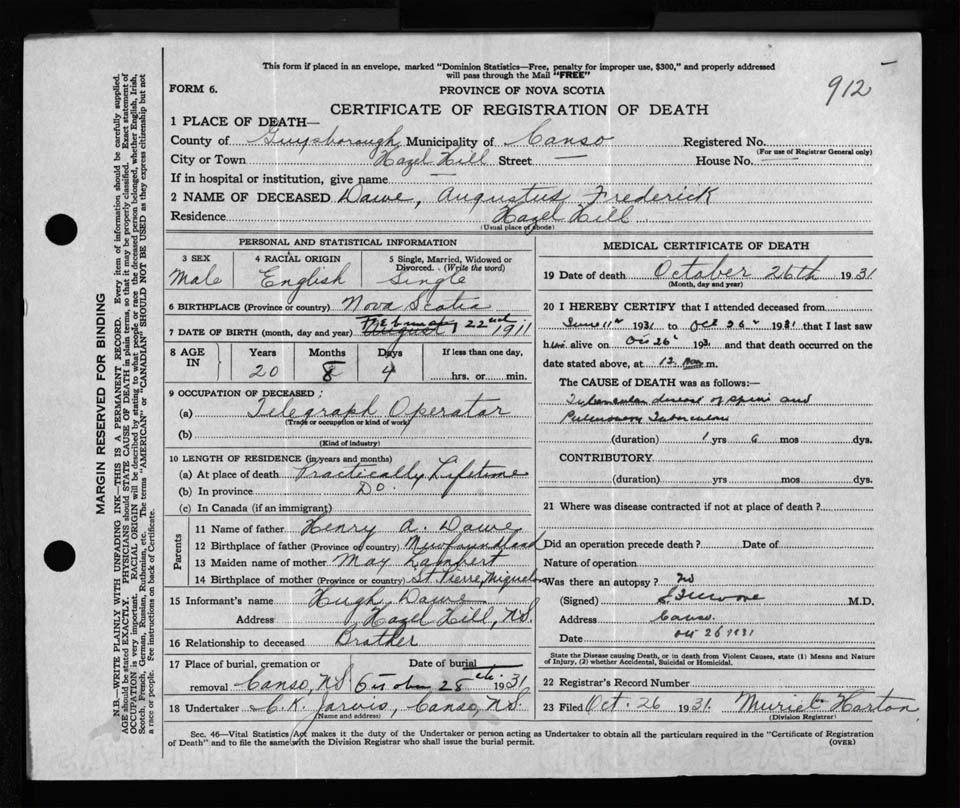 This form if placed in an envelope, marked "Dominion Statistics—Free, penalty for improper use, $300," and properly addressed
will pass through the Mail "FREE"
912
FORM 6.
PROVINCE OF NOVA SCOTIA
CERTIFICATE OF REGISTRATION OF DEATH
1 PLACE OF DEATH—
County of Guysborough Municipality of Canso Registered No.
(For use of Registrar General only)
City or Town Hazel Hill Street — House No. —
If in hospital or institution, give name —
2 NAME OF DECEASED Dawe, Augustus Frederick
Residence Hazel Hill
(Usual place of abode)
PERSONAL AND STATISTICAL INFORMATION
3 SEX 4 RACIAL ORIGIN 5 Single, Married, Widowed or
Divorced. (Write the word)
Male English Single
6 BIRTHPLACE (Province or country) Nova Scotia
7 DATE OF BIRTH (month, day and year) February 22nd 1911
8 AGE IN Years Months Days If less than one day,
20 8 4 hrs. or min.
9 OCCUPATION OF DECEASED:
(a) Telegraph Operator
(Trade or occupation or kind of work)
(b)
(Kind of industry)
10 LENGTH OF RESIDENCE (in years and months)
(a) At place of death Practically Lifetime
(b) In province Do.
(c) In Canada (if an immigrant)
Parents
11 Name of father Henry A. Dawe
12 Birthplace of father (Province or country) Newfoundland
13 Maiden name of mother May Lambert
14 Birthplace of mother (Province or country) St. Pierre, Miquelon
15 Informant's name Hugh Dawe
Address Hazel Hill, N.S.
16 Relationship to deceased Brother
17 Place of burial, cremation or Date of burial
removal Canso, N.S. October 28th 1931
18 Undertaker C. K. Jarvis, Canso, N.S.
(Name and address)
MEDICAL CERTIFICATE OF DEATH
19 Date of death October 26th 1931
(Month, day and year)
20 I HEREBY CERTIFY that I attended deceased from
June 11th 1931 to Oct 26th 1931 that I last saw
him alive on Oct 26th 1931 and that death occurred on the
date stated above, at 12 m.
The CAUSE of DEATH was as follows:—
Tubercular disease of spine and
Pulmonary Tuberculosis
(duration) 1 yrs 6 mos dys.
CONTRIBUTORY
(duration) yrs mos dys.
21 Where was disease contracted if not at place of death?
Did an operation precede death? Date of
Nature of operation
Was there an autopsy? No
(Signed) M.D.
Address Canso.
Date Oct 26 1931
State the Disease causing Death, or in death from Violent Causes, state (1) Means and Nature
of Injury, (2) whether Accidental, Suicidal or Homicidal.
22 Registrar's Record Number
23 Filed Oct. 26 1931. Muriel Horton
(Division Registrar)
Sec. 46—Vital Statistics Act makes it the duty of the Undertaker or person acting as Undertaker to obtain all the particulars required in the "Certificate of Registration
of Death" and to file the same with the Division Registrar who shall issue the burial permit. (OVER)
MARGIN RESERVED FOR BINDING
N.B.—WRITE PLAINLY WITH UNFADING INK—THIS IS A PERMANENT RECORD. Every item of information should be carefully supplied.
AGE should be stated EXACTLY. PHYSICIANS should STATE CAUSE OF DEATH in plain terms, so that it may be properly classified. Exact statement of
OCCUPATION is very important. RACIAL ORIGIN will be described by stating to what people or race the deceased person belonged, whether English, Irish,
Scotch, French, German, Russian, Ruthenian, etc. The terms "AMERICAN" or "CANADIAN" SHOULD NOT BE USED as they express citizenship but not
a race or people. See instructions on back of Certificate.